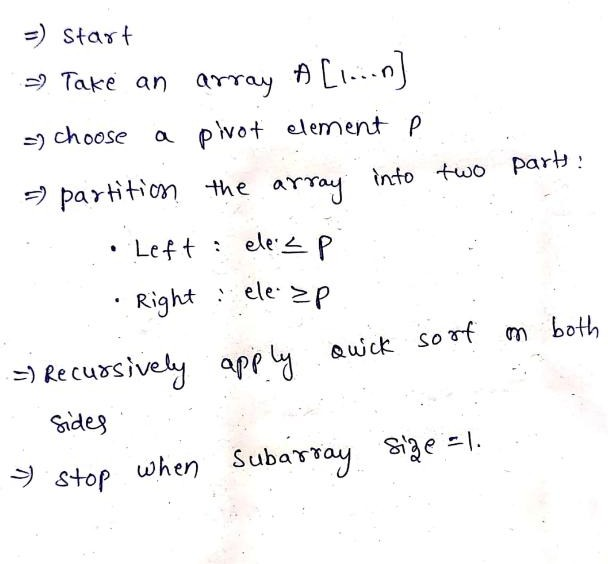 ⇒ Start
⇒ Take an array A[1...n]
⇒ choose a pivot element P
⇒ partition the array into two parts:
• Left : ele. ≤ p
• Right : ele. ≥ p
⇒ Recursively apply Quick sort on both
sides
⇒ stop when subarray size = 1.